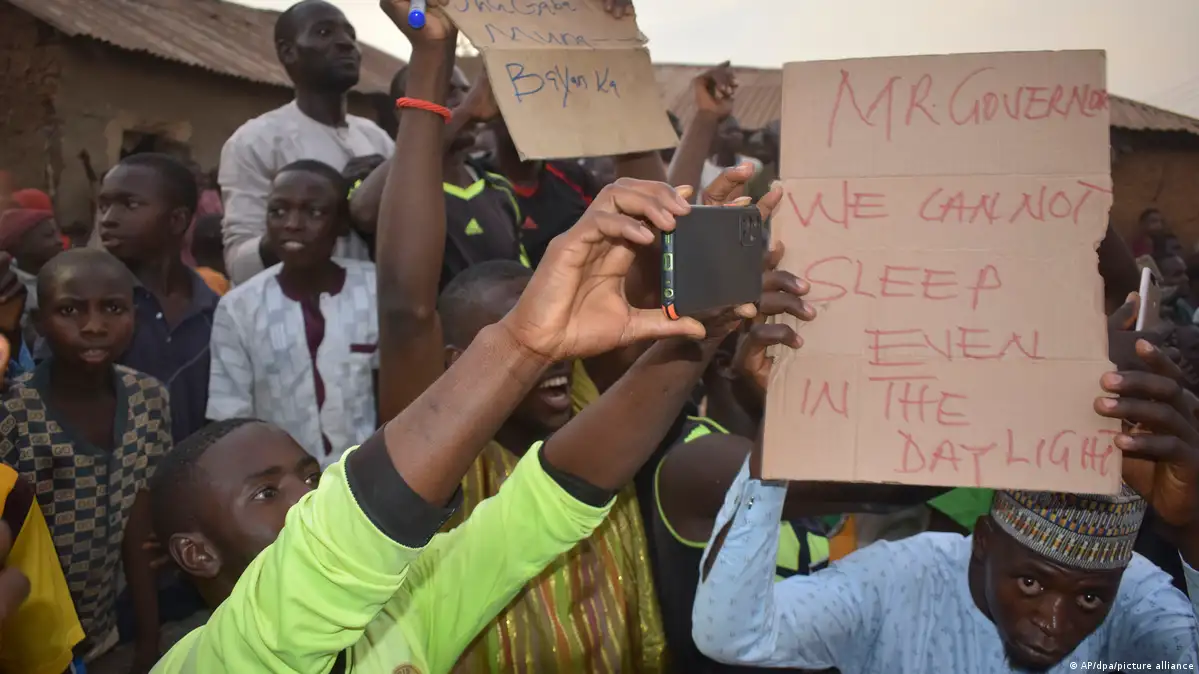 Muna
Bayan Ka
MR. GOVERNOR
WE CAN NOT
SLEEP
EVEN
IN THE
DAYLIGHT
© AP/dpa/picture alliance